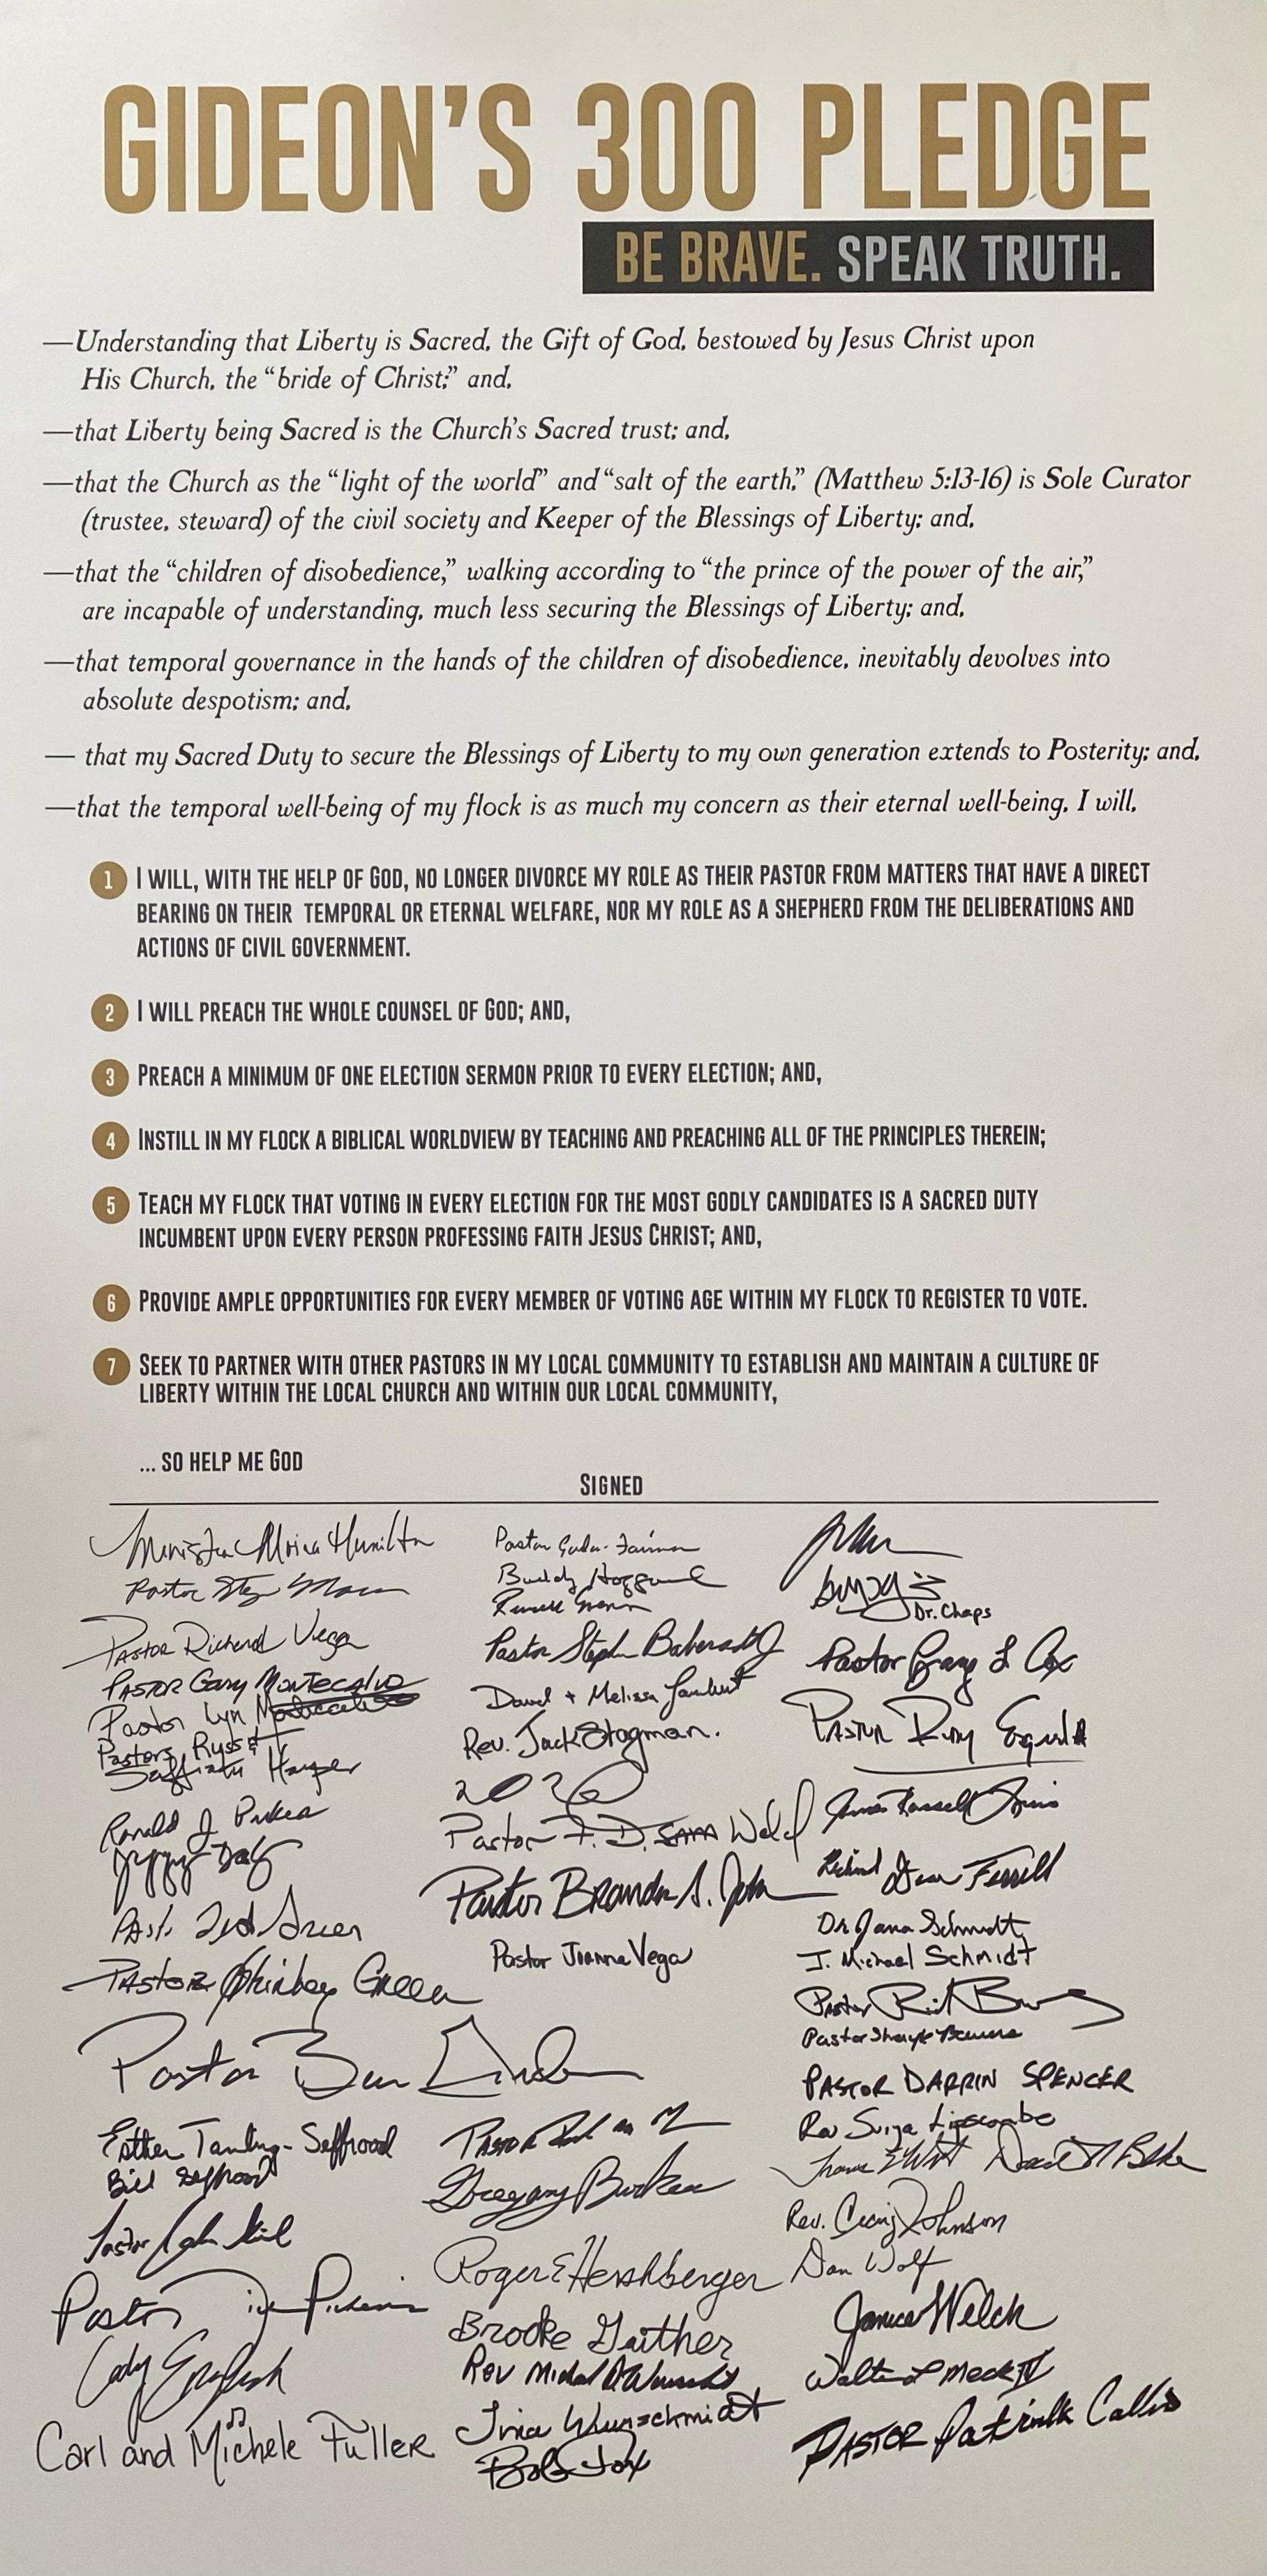 GIDEON'S 300 PLEDGE
BE BRAVE. SPEAK TRUTH.
—Understanding that Liberty is Sacred, the Gift of God, bestowed by Jesus Christ upon
His Church, the "bride of Christ;" and,
—that Liberty being Sacred is the Church's Sacred trust; and,
—that the Church as the "light of the world" and "salt of the earth," (Matthew 5:13-16) is Sole Curator
(trustee, steward) of the civil society and Keeper of the Blessings of Liberty; and,
—that the "children of disobedience," walking according to "the prince of the power of the air,"
are incapable of understanding, much less securing the Blessings of Liberty; and,
—that temporal governance in the hands of the children of disobedience, inevitably devolves into
absolute despotism; and,
— that my Sacred Duty to secure the Blessings of Liberty to my own generation extends to Posterity; and,
—that the temporal well-being of my flock is as much my concern as their eternal well-being, I will,
1 I WILL, WITH THE HELP OF GOD, NO LONGER DIVORCE MY ROLE AS THEIR PASTOR FROM MATTERS THAT HAVE A DIRECT
BEARING ON THEIR TEMPORAL OR ETERNAL WELFARE, NOR MY ROLE AS A SHEPHERD FROM THE DELIBERATIONS AND
ACTIONS OF CIVIL GOVERNMENT.
2 I WILL PREACH THE WHOLE COUNSEL OF GOD; AND,
3 PREACH A MINIMUM OF ONE ELECTION SERMON PRIOR TO EVERY ELECTION; AND,
4 INSTILL IN MY FLOCK A BIBLICAL WORLDVIEW BY TEACHING AND PREACHING ALL OF THE PRINCIPLES THEREIN;
5 TEACH MY FLOCK THAT VOTING IN EVERY ELECTION FOR THE MOST GODLY CANDIDATES IS A SACRED DUTY
INCUMBENT UPON EVERY PERSON PROFESSING FAITH JESUS CHRIST; AND,
6 PROVIDE AMPLE OPPORTUNITIES FOR EVERY MEMBER OF VOTING AGE WITHIN MY FLOCK TO REGISTER TO VOTE.
7 SEEK TO PARTNER WITH OTHER PASTORS IN MY LOCAL COMMUNITY TO ESTABLISH AND MAINTAIN A CULTURE OF
LIBERTY WITHIN THE LOCAL CHURCH AND WITHIN OUR LOCAL COMMUNITY,
... SO HELP ME GOD
SIGNED
Minister
Pastor
Pastor Richard Viega
Pastor Gary Montecalvo
Pastor Lyn
Pastors Russ &
Harper
Ronald J.
Past.
Pastor Green
Pastor Ben
Esther Seffrood
Bill Seffrood
Pastor
Pastor
Cody English
Carl and Michele Fuller
Pastor
Buddy
Pastor Stephen
David + Melissa Lambert
Rev. Jack Stagman.
Pastor F. D. Sam
Pastor Brandon S.
Pastor Joanna Vega
Pastor
Gregory
Roger E Hershberger
Brooke Gaither
Rev
Wunschmidt
Bob Fox
Dr. Chaps
Pastor L Cox
Pastor
James Russell
Richard Dean Ferrell
Dr Jana Schmidt
J. Michael Schmidt
Pastor
Pastor
PASTOR DARRIN SPENCER
Rev Lipscombe
Rev. Craig Johnson
Dan Wolf
Janice Welch
Walter L Meck IV
PASTOR Patrick